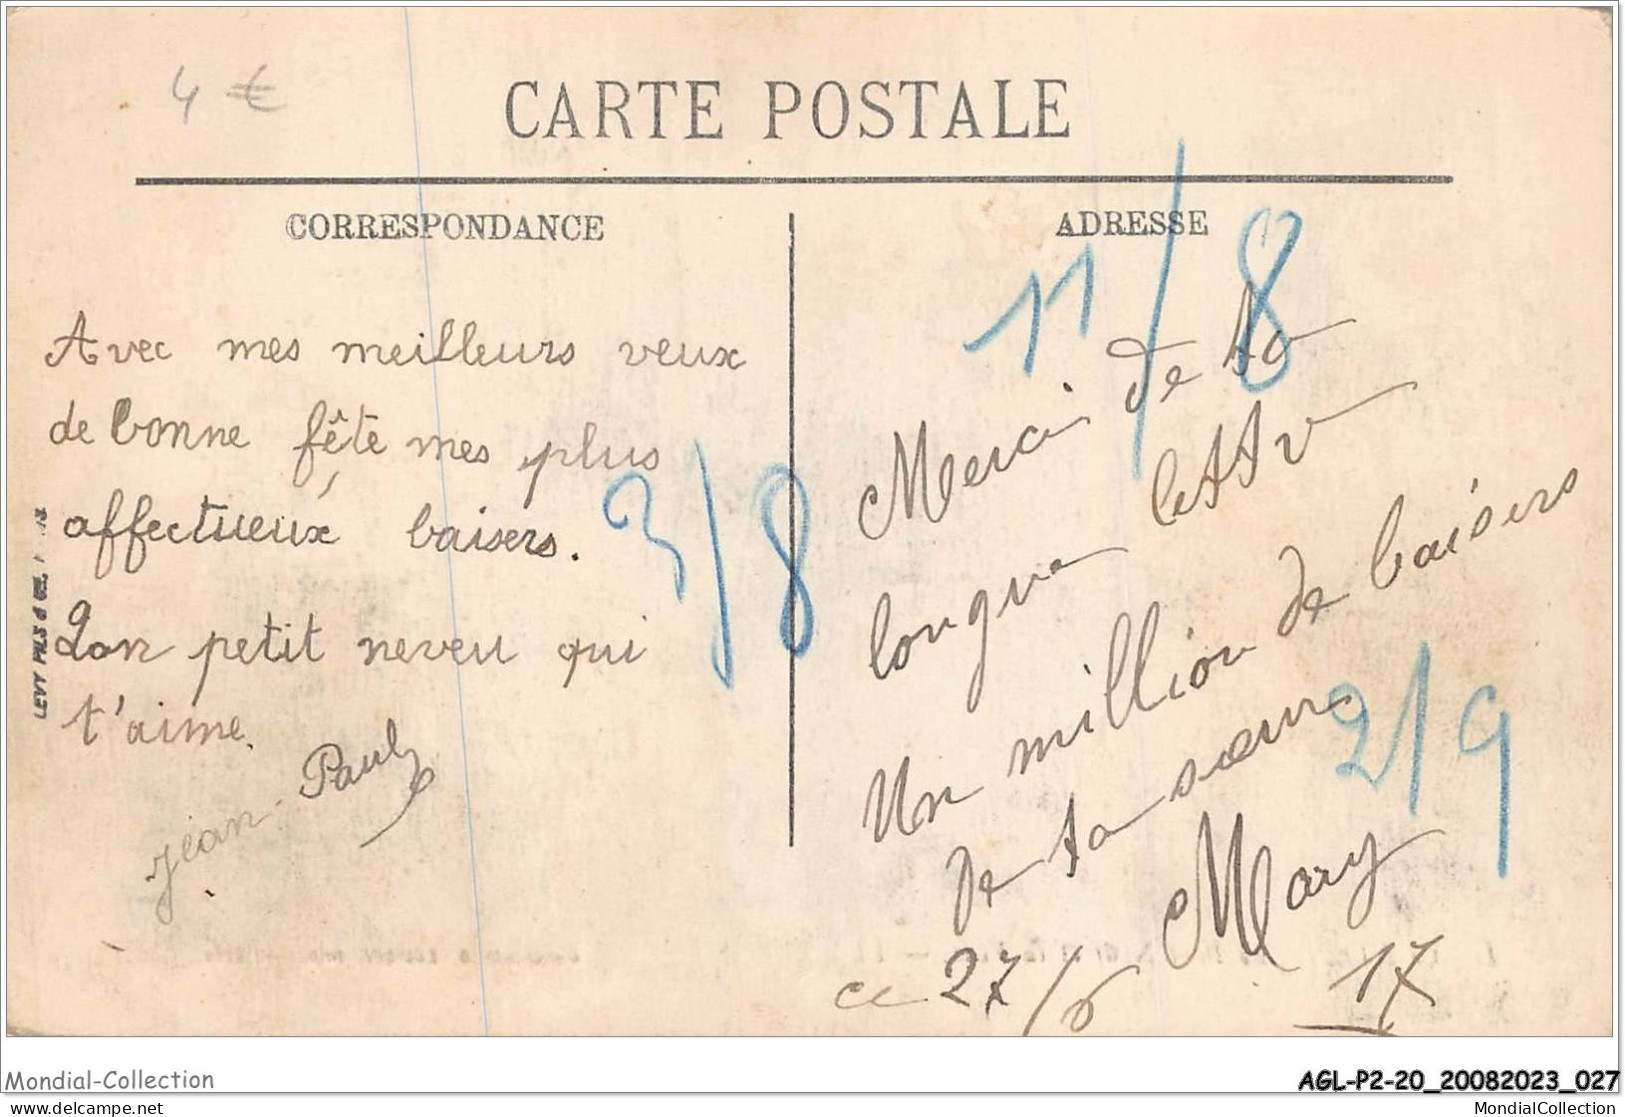 4 €
CARTE POSTALE
CORRESPONDANCE
ADRESSE
Avec mes meilleurs veux
de bonne fête mes plus
affectueux baisers.
Ton petit neveu qui
t'aime.
Jean-Paul
LEVY FILS & CIE,
11/8
3/8
2/9
Merci de ta
longue lettre
Un million de baisers
de ta sœur
Mary
ce 27/6 17
Mondial-Collection
AGL-P2-20_20082023_027
delcampe.net
MondialCollection